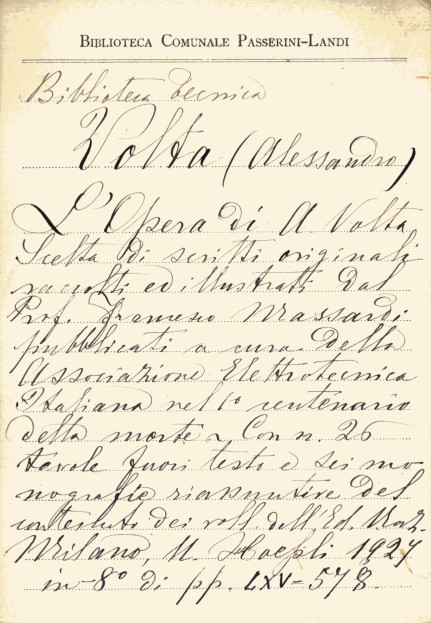 BIBLIOTECA COMUNALE PASSERINI-LANDI
Biblioteca Tecnica
Volta (Alessandro)
L'Opera di A. Volta
Scelta di scritti originali
raccolti ed illustrati dal
Prof. Francesco Massardi
pubblicati a cura della
Associazione Elettrotecnica
Italiana nel 1° centenario
della morte ~ Con n. 26
tavole fuori testo e sei mo
nografie riassuntive del
contenuto dei voll. dell'Ed. Naz.
Milano, U. Hoepli 1927
in-8° di pp. LXV-578.